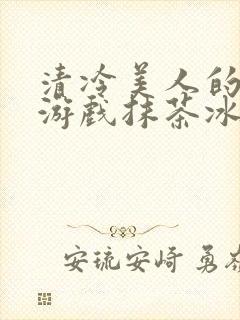 清冷美人的
游戏抹茶冰
安琉安崎 勇